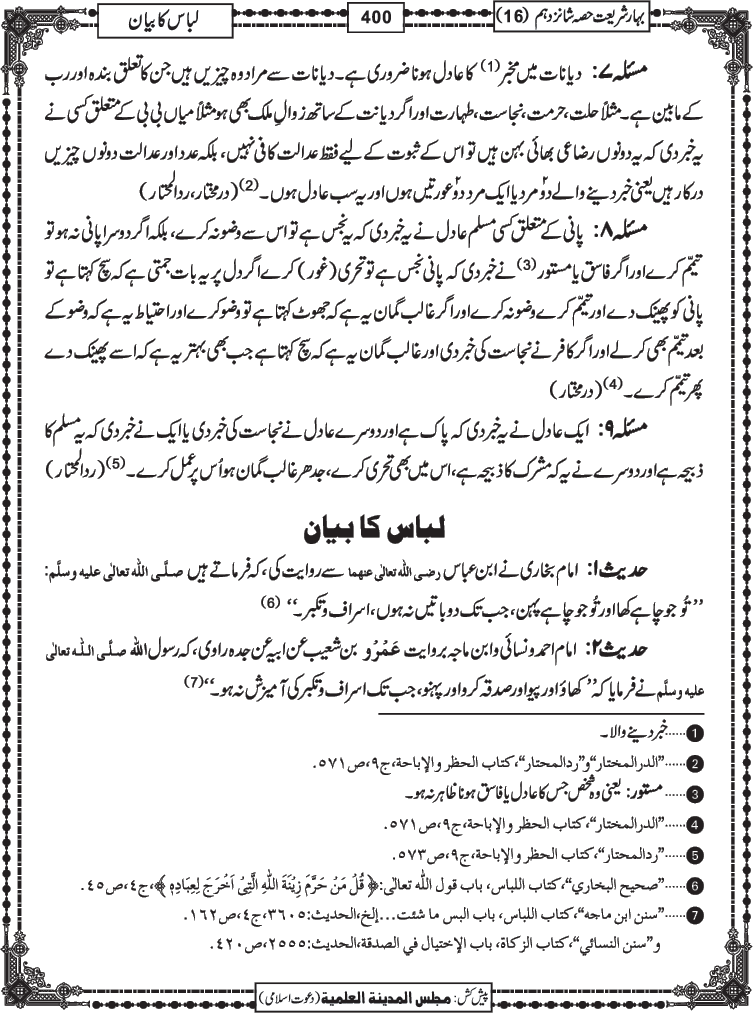 بہار شریعت حصہ شانزدہم (16)
400
لباس کا بیان
مسئلہ ۷: دیانات میں مخبر (1) کا عادل ہونا ضروری ہے۔ دیانات سے مراد وہ چیزیں ہیں جن کا تعلق بندہ اور رب
کے مابین ہے۔ مثلاً حلت، حرمت، نجاست، طہارت اور اگر دیانت کے ساتھ زوالِ ملک بھی ہو مثلاً میاں بی بی کے متعلق کسی نے
یہ خبر دی کہ یہ دونوں رضاعی بھائی بہن ہیں تو اس کے ثبوت کے لیے فقط عدالت کافی نہیں، بلکہ عدد اور عدالت دونوں چیزیں
درکار ہیں یعنی خبر دینے والے دو مرد یا ایک مرد دو عورتیں ہوں اور یہ سب عادل ہوں۔ (2) (درمختار، ردالمحتار)
مسئلہ ۸: پانی کے متعلق کسی مسلم عادل نے یہ خبر دی کہ یہ نجس ہے تو اس سے وضو نہ کرے، بلکہ اگر دوسرا پانی نہ ہو تو
تیمّم کرے اور اگر فاسق یا مستور (3) نے خبر دی کہ پانی نجس ہے تو تحری (غور) کرے اگر دل پر یہ بات جمتی ہے کہ سچ کہتا ہے تو
پانی کو پھینک دے اور تیمّم کرے وضو نہ کرے اور اگر غالب گمان یہ ہے کہ جھوٹ کہتا ہے تو وضو کرے اور احتیاط یہ ہے کہ وضو کے
بعد تیمّم بھی کرلے اور اگر کافر نے نجاست کی خبر دی اور غالب گمان یہ ہے کہ سچ کہتا ہے جب بھی بہتر یہ ہے کہ اسے پھینک دے
پھر تیمّم کرے۔ (4) (درمختار)
مسئلہ ۹: ایک عادل نے یہ خبر دی کہ پاک ہے اور دوسرے عادل نے نجاست کی خبر دی یا ایک نے خبر دی کہ یہ مسلم کا
ذبیحہ ہے اور دوسرے نے یہ کہ مشرک کا ذبیحہ ہے، اس میں بھی تحری کرے، جدھر غالب گمان ہو اُس پر عمل کرے۔ (5) (ردالمحتار)
لباس کا بیان
حدیث ۱: امام بخاری نے ابن عباس رضی اللہ تعالیٰ عنهما سے روایت کی، کہ فرماتے ہیں صلَّی اللہ تعالیٰ علیہ وسلَّم:
’’تُو جو چاہے کھا اور تُو جو چاہے پہن، جب تک دو باتیں نہ ہوں، اسراف و تکبر۔‘‘ (6)
حدیث ۲: امام احمد و نسائی و ابن ماجہ بروایت عَمْرُو بن شعیب عن ابیہ عن جدہ راوی، کہ رسول اللہ صلَّی اللہ تعالیٰ
علیہ وسلَّم نے فرمایا کہ ’’کھاؤ اور پیو اور صدقہ کرو اور پہنو، جب تک اسراف و تکبر کی آمیزش نہ ہو۔‘‘ (7)
1 ......خبر دینے والا۔
2 ......"الدرالمختار" و"ردالمحتار"، کتاب الحظر والإباحة، ج۹، ص۵۷۱.
3 ......مستور: یعنی وہ شخص جس کا عادل یا فاسق ہونا ظاہر نہ ہو۔
4 ......"الدرالمختار"، کتاب الحظر والإباحة، ج۹، ص۵۷۱.
5 ......"ردالمحتار"، کتاب الحظر والإباحة، ج۹، ص۵۷۳.
6 ......"صحیح البخاري"، کتاب اللباس، باب قول اللہ تعالیٰ: ﴿قُلْ مَنْ حَرَّمَ زِیْنَةَ اللّٰهِ الَّتِیْۤ اَخْرَجَ لِعِبَادِهٖ﴾، ج٤، ص٤٥.
7 ......"سنن ابن ماجه"، کتاب اللباس، باب البس ما شئت... إلخ، الحدیث: ۳٦۰۵، ج٤، ص۱٦۲.
و"سنن النسائي"، کتاب الزکاة، باب الإختیال في الصدقة، الحدیث: ۲۵۵۵، ص٤۲۰.
پیش کش: مجلس المدینة العلمیة (دعوتِ اسلامی)